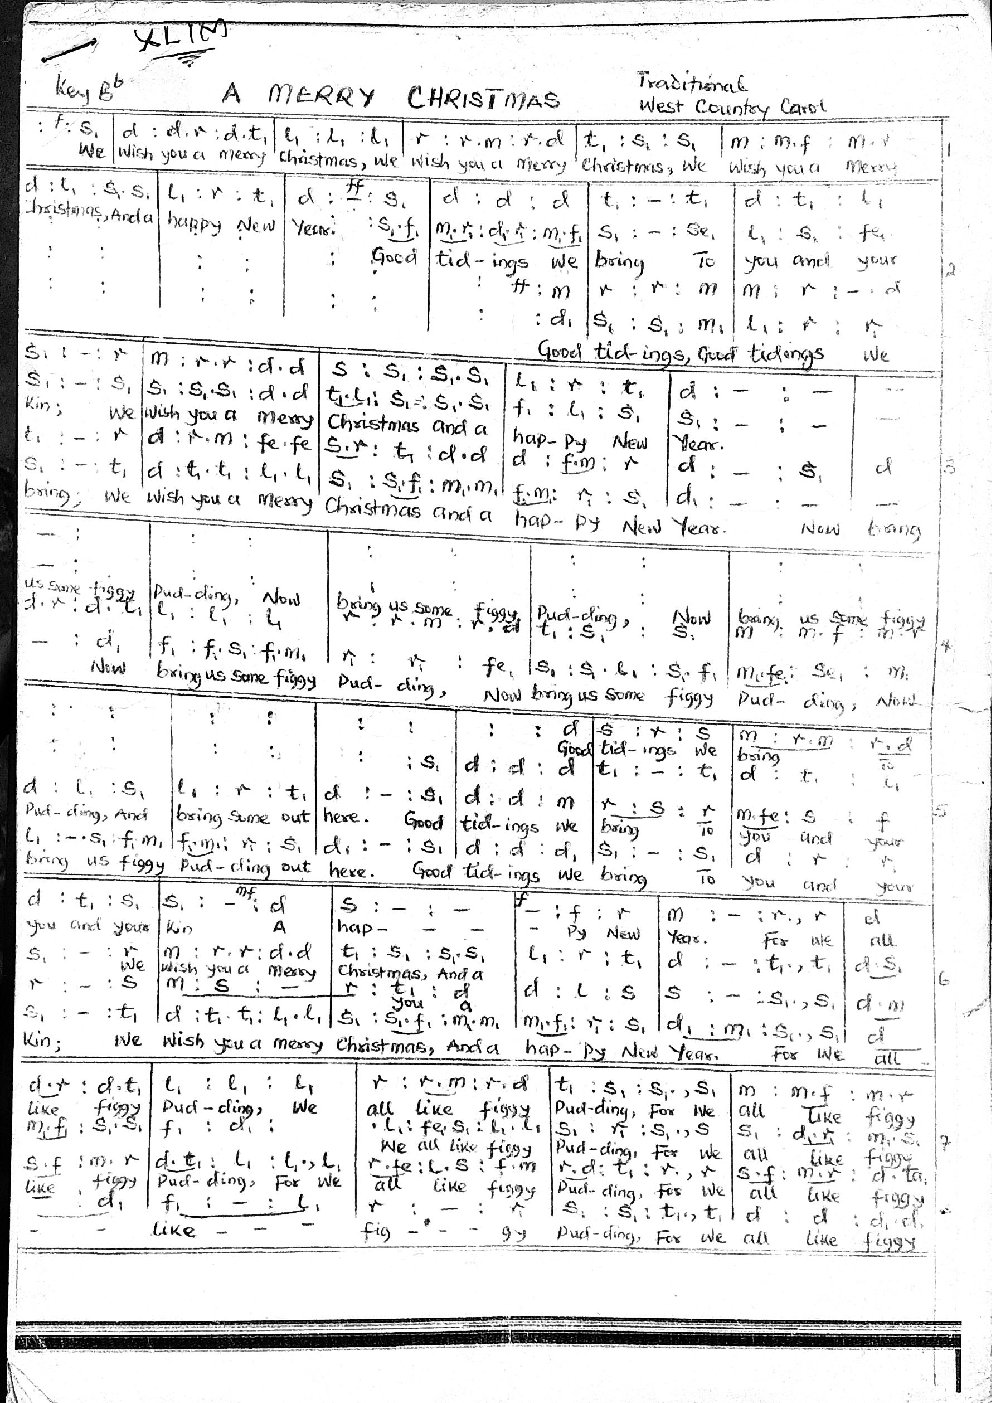 XLIM
Key Bb
A MERRY CHRISTMAS
Traditional
West Country Carol
: f: s₁ | d : d.r : d.t₁ | l₁ : l₁ : l₁ | r : r.m : r.d | t₁ : s₁ : s₁ | m : m.f : m.r
We Wish you a merry Christmas, We wish you a Merry Christmas, We Wish you a Merry
1
d : l₁ : s₁.s₁ | l₁ : r : t₁ | d : ff : s₁ | d : d : d | t₁ : - : t₁ | d : t₁ : l₁
Christmas, And a happy New Year. : s₁.f₁ | m₁.r₁ : d₁.r₁ : m₁.f₁ | s₁ : - : se₁ | l₁ : s₁ : fe₁
Good tid-ings We bring To you and your
2
ff : m | r : r : m | m : r : - . d
: d₁ | s₁ : s₁ : m₁ | l₁ : r : r₁
Good tid-ings, Good tidings We
s₁ : - : r | m : r.r : d.d | s : s₁ : s₁.s₁ | l₁ : r : t₁ | d : - : - | -
s₁ : - : s₁ | s₁ : s₁.s₁ : d.d | t₁.l₁ : s₁ : s₁.s₁ | f₁ : l₁ : s₁ | s₁ : - : - | -
Kin; We Wish you a merry Christmas and a hap-py New Year.
t₁ : - : r | d : r.m : fe.fe | s.r : t₁ : d.d | d : f.m : r | d : - : s₁ | d
3
s₁ : - : t₁ | d : t₁.t₁ : l₁.l₁ | s₁ : s₁.f₁ : m₁.m₁ | f₁.m₁ : r₁ : s₁ | d₁ : - : - | -
bring; We Wish you a Merry Christmas and a hap-py New Year. Now bring
us some figgy Pud-ding, Now bring us some figgy Pud-ding, Now bring us some figgy
d.r : d.t₁ | l₁ : l₁ : l₁ | r : r.m : r.d | t₁ : s₁ : s₁ | m : m.f : m.r
4
- : d₁ | f₁ : f₁.s₁ : f₁.m₁ | r₁ : r₁ : fe₁ | s₁ : s₁.l₁ : s₁.f₁ | m₁.fe₁ : se₁ : m₁
Now bring us some figgy Pud-ding, Now bring us some figgy Pud-ding, Now
: : d | s : r : s | m : r.m : r.d
Good tid-ings We bring To
: s₁ | d : d : d | t₁ : - : t₁ | d : t₁ : l₁
d : l₁ : s₁ | l₁ : r : t₁ | d : - : s₁ | d : d : m | r : s : r | m.fe : s : f
5
Pud-ding, And bring some out here. Good tid-ings We bring To you and your
l₁ : - . s₁ : f₁.m₁ | f₁.m₁ : r₁ : s₁ | d₁ : - : s₁ | d : d : d₁ | s₁ : - : s₁ | d : r : r₁
bring us figgy Pud-ding out here. Good tid-ings We bring To you and your
d : t₁ : s₁ | s₁ : - mf : d | s : - : - | f - : f : r | m : - : r., r | d
you and your Kin A hap- - - - Py New Year. For We all
s₁ : - : r | m : r.r : d.d | t₁ : s₁ : s₁.s₁ | l₁ : r : t₁ | d : - : t₁., t₁ | d.s₁
We Wish you a Merry Christmas, And a
6
r : - : s | m : s : - | r : t₁ : d | d : l : s | s : - : s₁., s₁ | d.m
you a
s₁ : - : t₁ | d : t₁.t₁ : l₁.l₁ | s₁ : s₁.f₁ : m₁.m₁ | m₁.f₁ : r₁ : s₁ | d₁ : m₁ : s₁., s₁ | d
Kin; We Wish you a merry Christmas, And a hap-py New Year. For We all
d.r : d.t₁ | l₁ : l₁ : l₁ | r : r.m : r.d | t₁ : s₁ : s₁., s₁ | m : m.f : m.r
like figgy Pud-ding, We all like figgy Pud-ding, For We all like figgy
m₁.f₁ : s₁.s₁ | f₁ : d₁ : | . l₁ : fe₁.s₁ : l₁.l₁ | s₁ : r₁ : s₁., s | s₁ : d₁.r₁ : m₁.s₁
We all like figgy Pud-ding, For We all like figgy
7
s.f : m.r | d.t₁ : l₁ : l₁., l₁ | r.fe : l.s : f.m | r.d : t₁ : r., r | s.f : m.r : d.ta₁
like figgy Pud-ding, For We all like figgy Pud-ding, For We all like figgy
: d₁ | f₁ : - : l₁ | r : - : r₁ | s₁ : s₁ : t₁., t₁ | d : d : d₁.d₁
- - like - - fig - - gy Pud-ding, For We all like figgy